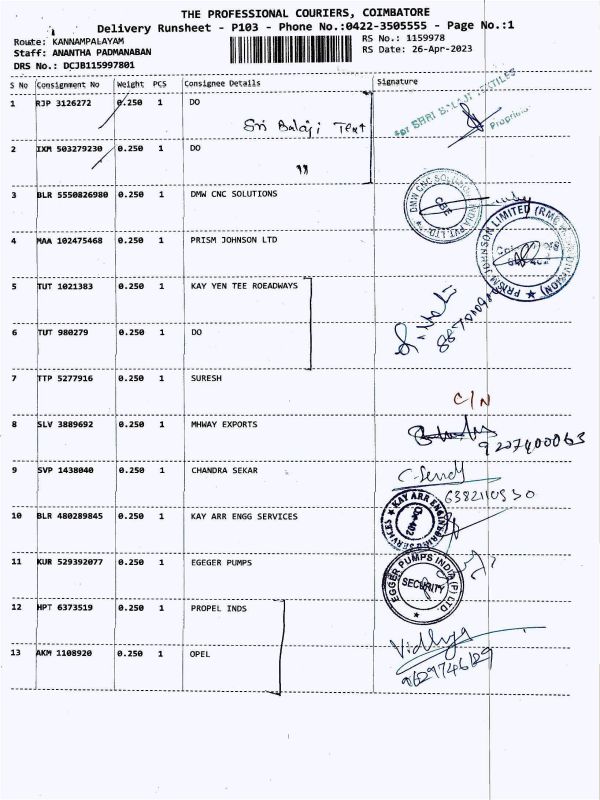 THE PROFESSIONAL COURIERS, COIMBATORE
Delivery Runsheet - P103 - Phone No.:0422-3505555 - Page No.:1
Route: KANNAMPALAYAM
RS No.: 1159978
Staff: ANANTHA PADMANABAN
RS Date: 26-Apr-2023
DRS No.: DCJB115997801
S No Consignment No Weight PCS Consignee Details Signature
1 RJP 3126272 0.250 1 DO
for SHRI BALAJI TEXTILES
Sri Balaji Text
2 IXM 503279230 0.250 1 DO
"
3 BLR 5550826980 0.250 1 DMW CNC SOLUTIONS
DMW CNC SOLUTIONS INDIA PVT. LTD.
CBE
4 MAA 102475468 0.250 1 PRISM JOHNSON LTD
PRISM JOHNSON LIMITED (RMC INDIA DIVISION)
5 TUT 1021383 0.250 1 KAY YEN TEE ROEADWAYS
6 TUT 980279 0.250 1 DO
7 TTP 5277916 0.250 1 SURESH
C/N
8 SLV 3889692 0.250 1 MHWAY EXPORTS
9207400063
9 SVP 1438040 0.250 1 CHANDRA SEKAR
6382110530
10 BLR 480289845 0.250 1 KAY ARR ENGG SERVICES
KAY ARR ENGINEERING SERVICES
11 KUR 529392077 0.250 1 EGEGER PUMPS
EGGER PUMPS INDIA (P) LTD
SECURITY
12 HPT 6373519 0.250 1 PROPEL INDS
Vidhya
13 AKM 1108920 0.250 1 OPEL
9629746129